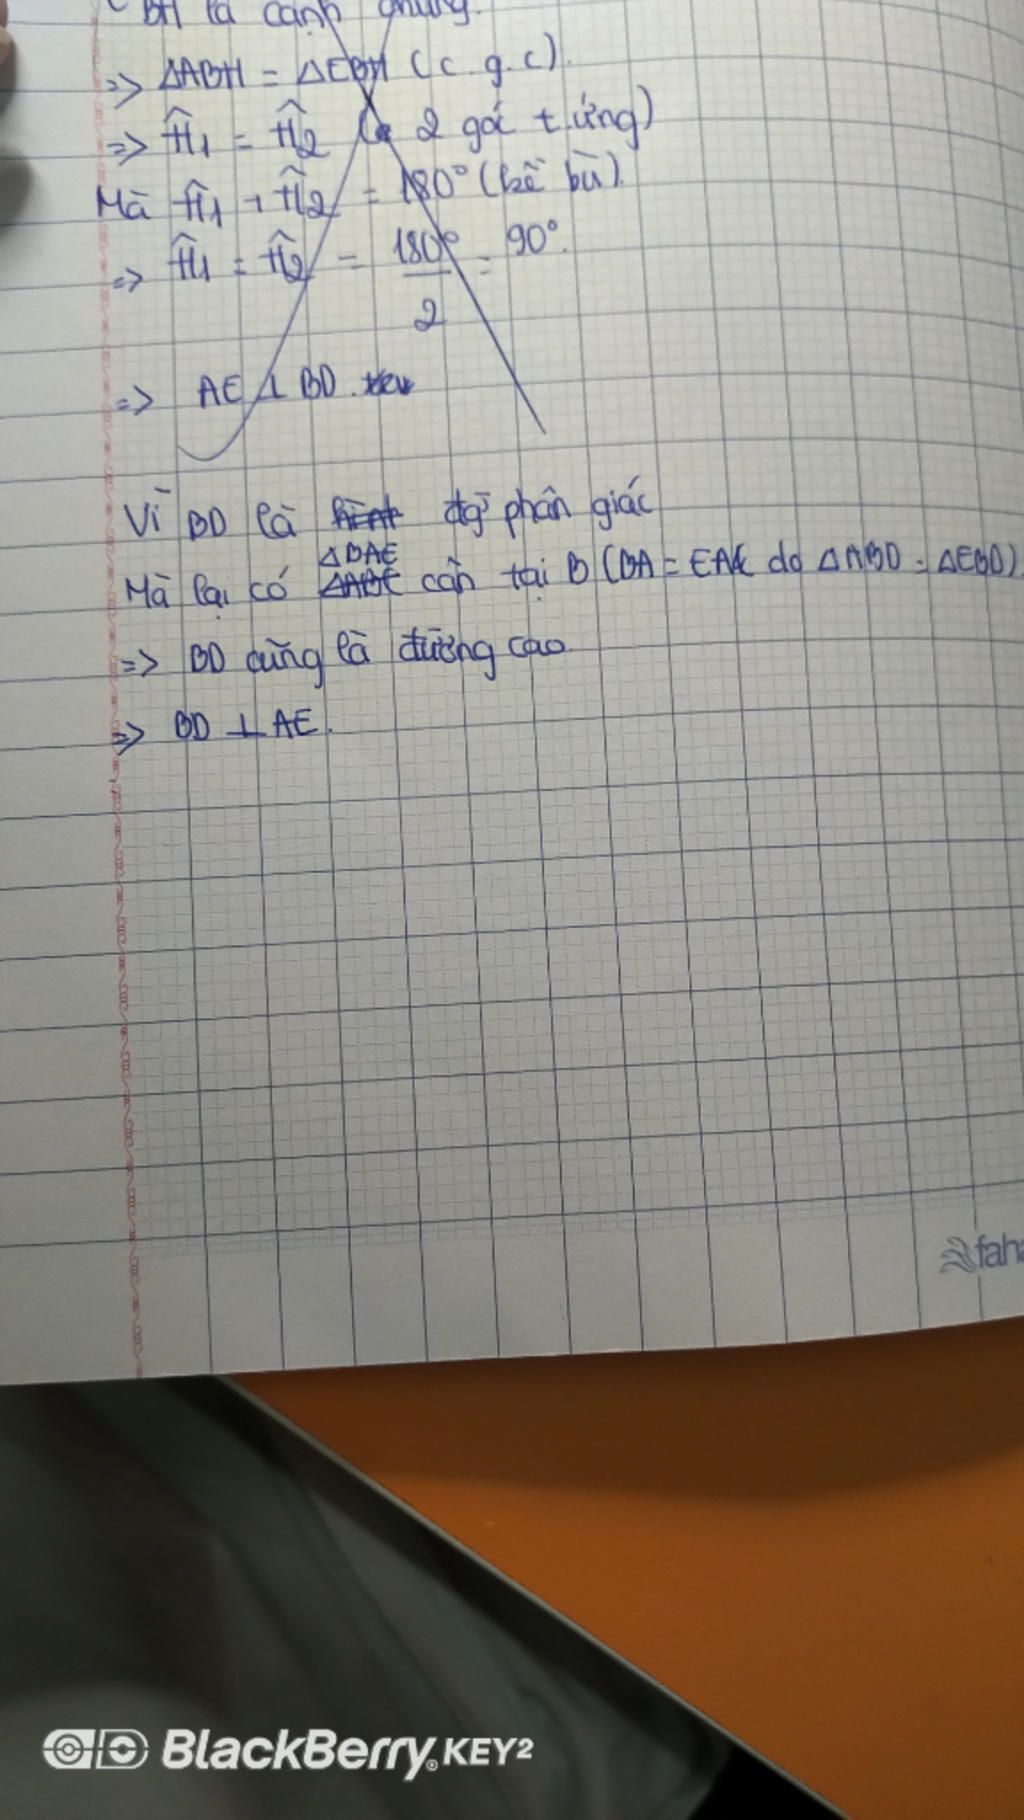 BH là cạnh chung.
=> ΔABH = ΔEBH (c.g.c).
=> Ĥ1 = Ĥ2 (2 góc t.ứng)
Mà Ĥ1 + Ĥ2 = 180° (kề bù).
=> Ĥ1 = Ĥ2 = 180°/2 = 90°.
=> AE ⊥ BD.
Vì BD là đg phân giác
Mà lại có ΔBAE cân tại B (BA = EA do ΔABD = ΔEBD).
=> BD cũng là đường cao.
=> BD ⊥ AE.
faha
BlackBerry KEY2